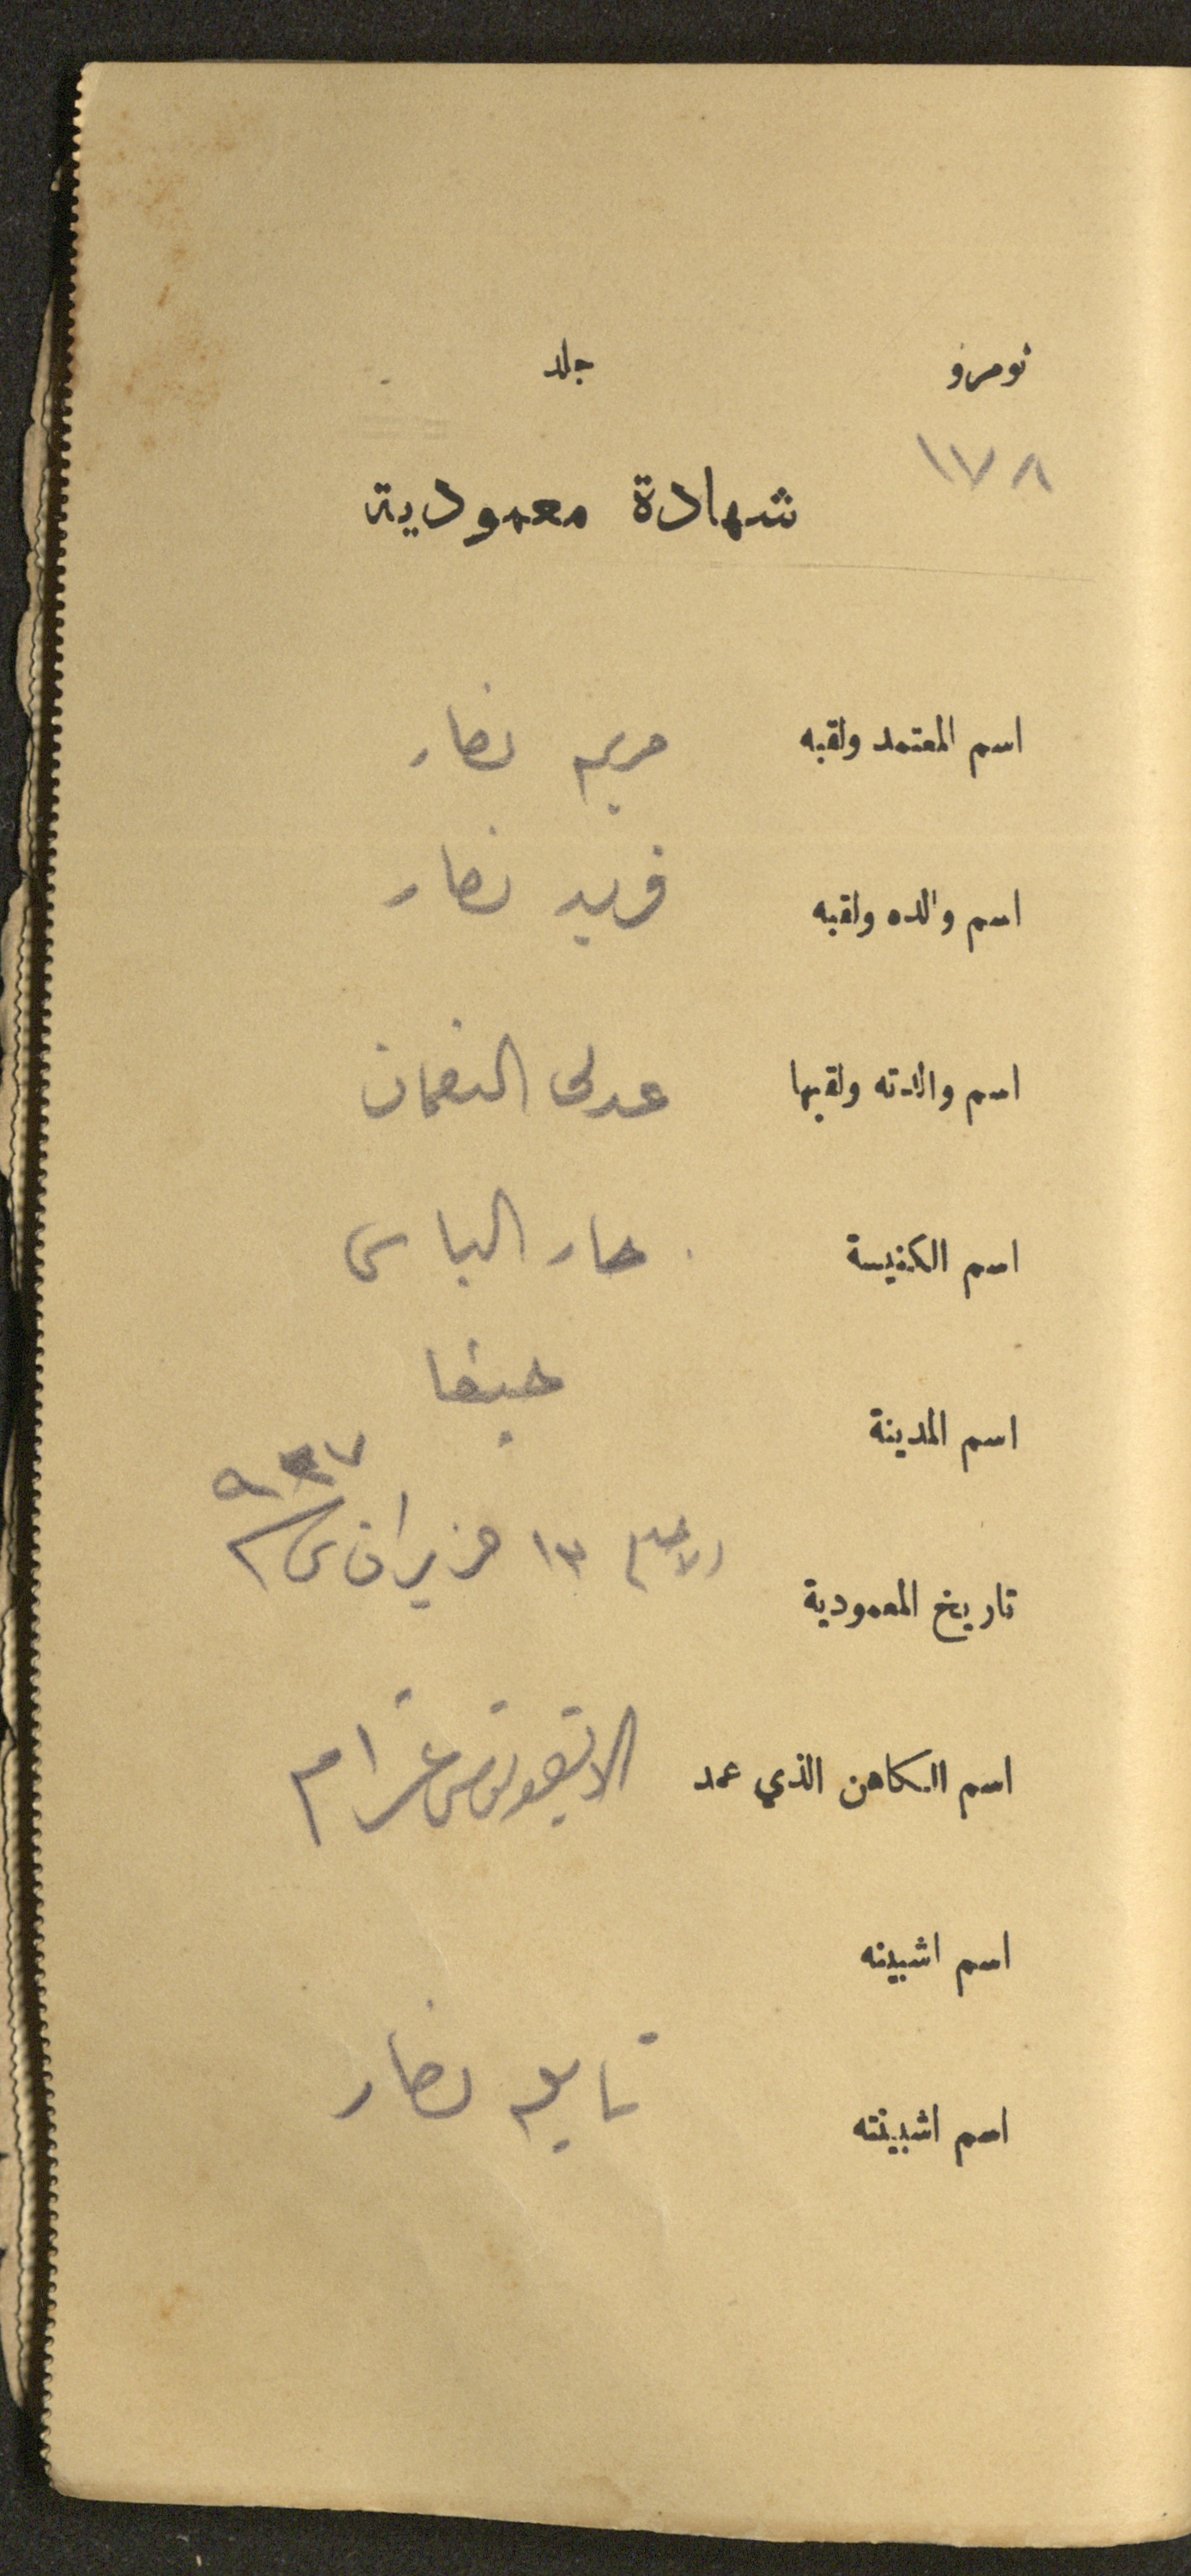 نومرو جلد
١٧٨
شهادة معمودية
اسم المعتمد ولقبه مريم نصار
اسم والده ولقبه فريد نصار
اسم والدته ولقبها عدلى النعمان
اسم الكنيسة مار الياس
اسم المدينة حيفا
٩٣٧
تاريخ المعمودية ١٣ حزيران س
اسم الكاهن الذي عمد
اسم اشبينه
اسم اشبينته نصار